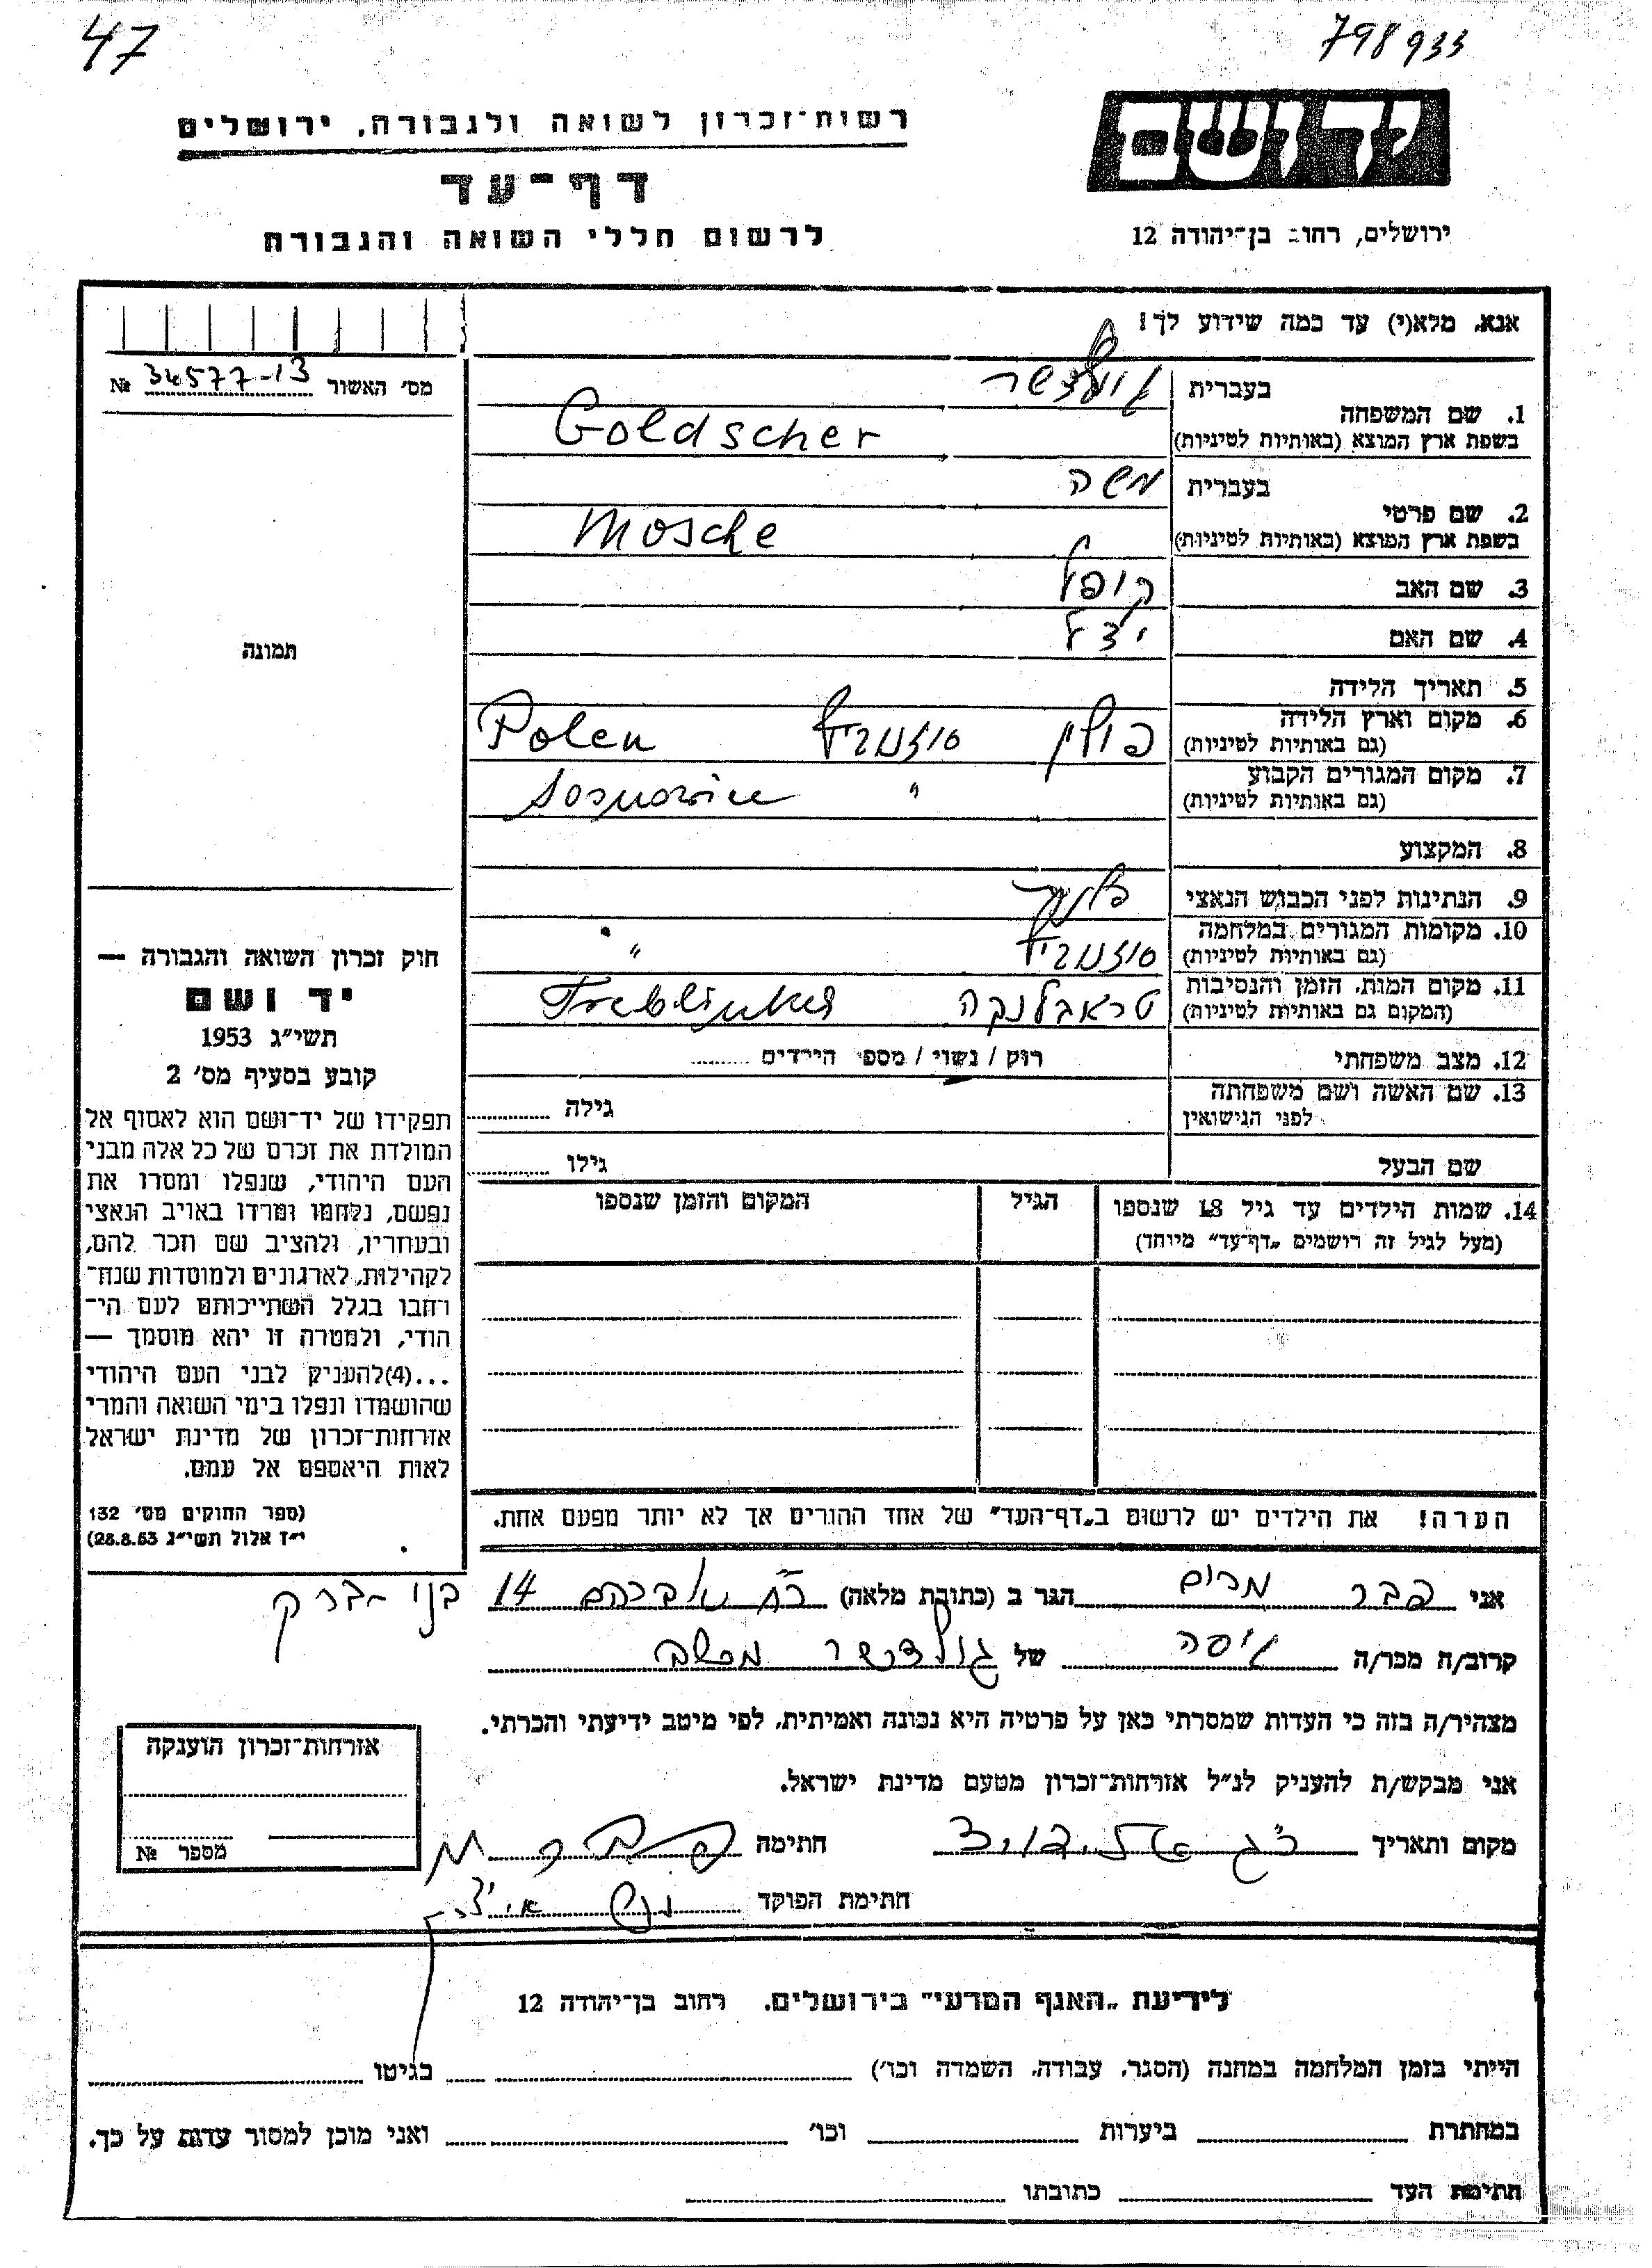 47
798933
יד ושם
רשות־זכרון לשואה ולגבורה, ירושלים
דף־עד
לרשום חללי השואה והגבורה
ירושלים, רחוב בן־יהודה 12
אנא, מלא(י) עד כמה שידוע לך!
מס׳ האשור 34577-13 №
בעברית
1. שם המשפחה
בשפת ארץ המוצא (באותיות לטיניות) Goldscher
בעברית משה
2. שם פרטי
בשפת ארץ המוצא (באותיות לטיניות) Mosche
3. שם האב קופל
4. שם האם
תמונה
5. תאריך הלידה
6. מקום וארץ הלידה פולין Polen
(גם באותיות לטיניות)
7. מקום המגורים הקבוע "
(גם באותיות לטיניות)
8. המקצוע
9. הנתינות לפני הכבוש הנאצי
10. מקומות המגורים במלחמה "
(גם באותיות לטיניות)
11. מקום המות, הזמן והנסיבות טראבלנקה Treblinka
(המקום גם באותיות לטיניות)
12. מצב משפחתי רווק / נשוי / מספר הילדים
13. שם האשה ושם משפחתה
לפני הנישואין גילה
שם הבעל גילו
14. שמות הילדים עד גיל 18 שנספו הגיל המקום והזמן שנספו
(מעל לגיל זה רושמים „דף־עד״ מיוחד)
חוק זכרון השואה והגבורה —
יד ושם
תשי״ג 1953
קובע בסעיף מס׳ 2
תפקידו של יד־ושם הוא לאסוף אל
המולדת את זכרם של כל אלה מבני
העם היהודי, שנפלו ומסרו את
נפשם, נלחמו ומרדו באויב הנאצי
ובעוזריו, ולהציב שם וזכר להם,
לקהילות, לארגונים ולמוסדות שנח־
רבו בגלל השתייכותם לעם הי־
הודי, ולמטרה זו יהא מוסמך —
...(4)להעניק לבני העם היהודי
שהושמדו ונפלו בימי השואה והמרי
אזרחות־זכרון של מדינת ישראל
לאות היאספם אל עמם.
(ספר החוקים מס׳ 132
י״ז אלול תשי״ג 28.8.53)
הערה! את הילדים יש לרשום ב„דף־העד״ של אחד ההורים אך לא יותר מפעם אחת.
אני פבר מרים הגר ב (כתובת מלאה) 14 בני-ברק
קרוב/ה מכר/ה גיסה של גולדשר משה
מצהיר/ה בזה כי העדות שמסרתי כאן על פרטיה היא נכונה ואמיתית, לפי מיטב ידיעתי והכרתי.
אני מבקש/ת להעניק לנ״ל אזרחות־זכרון מטעם מדינת ישראל.
מקום ותאריך חתימה
חתימת הפוקד
אזרחות־זכרון הוענקה
מספר №
לידיעת „האגף המדעי״ בירושלים, רחוב בן־יהודה 12
הייתי בזמן המלחמה במחנה (הסגר, עבודה, השמדה וכו׳) בגיטו
במחתרת ביערות וכו׳ ואני מוכן למסור עדות על כך.
חתימת העד כתובתו